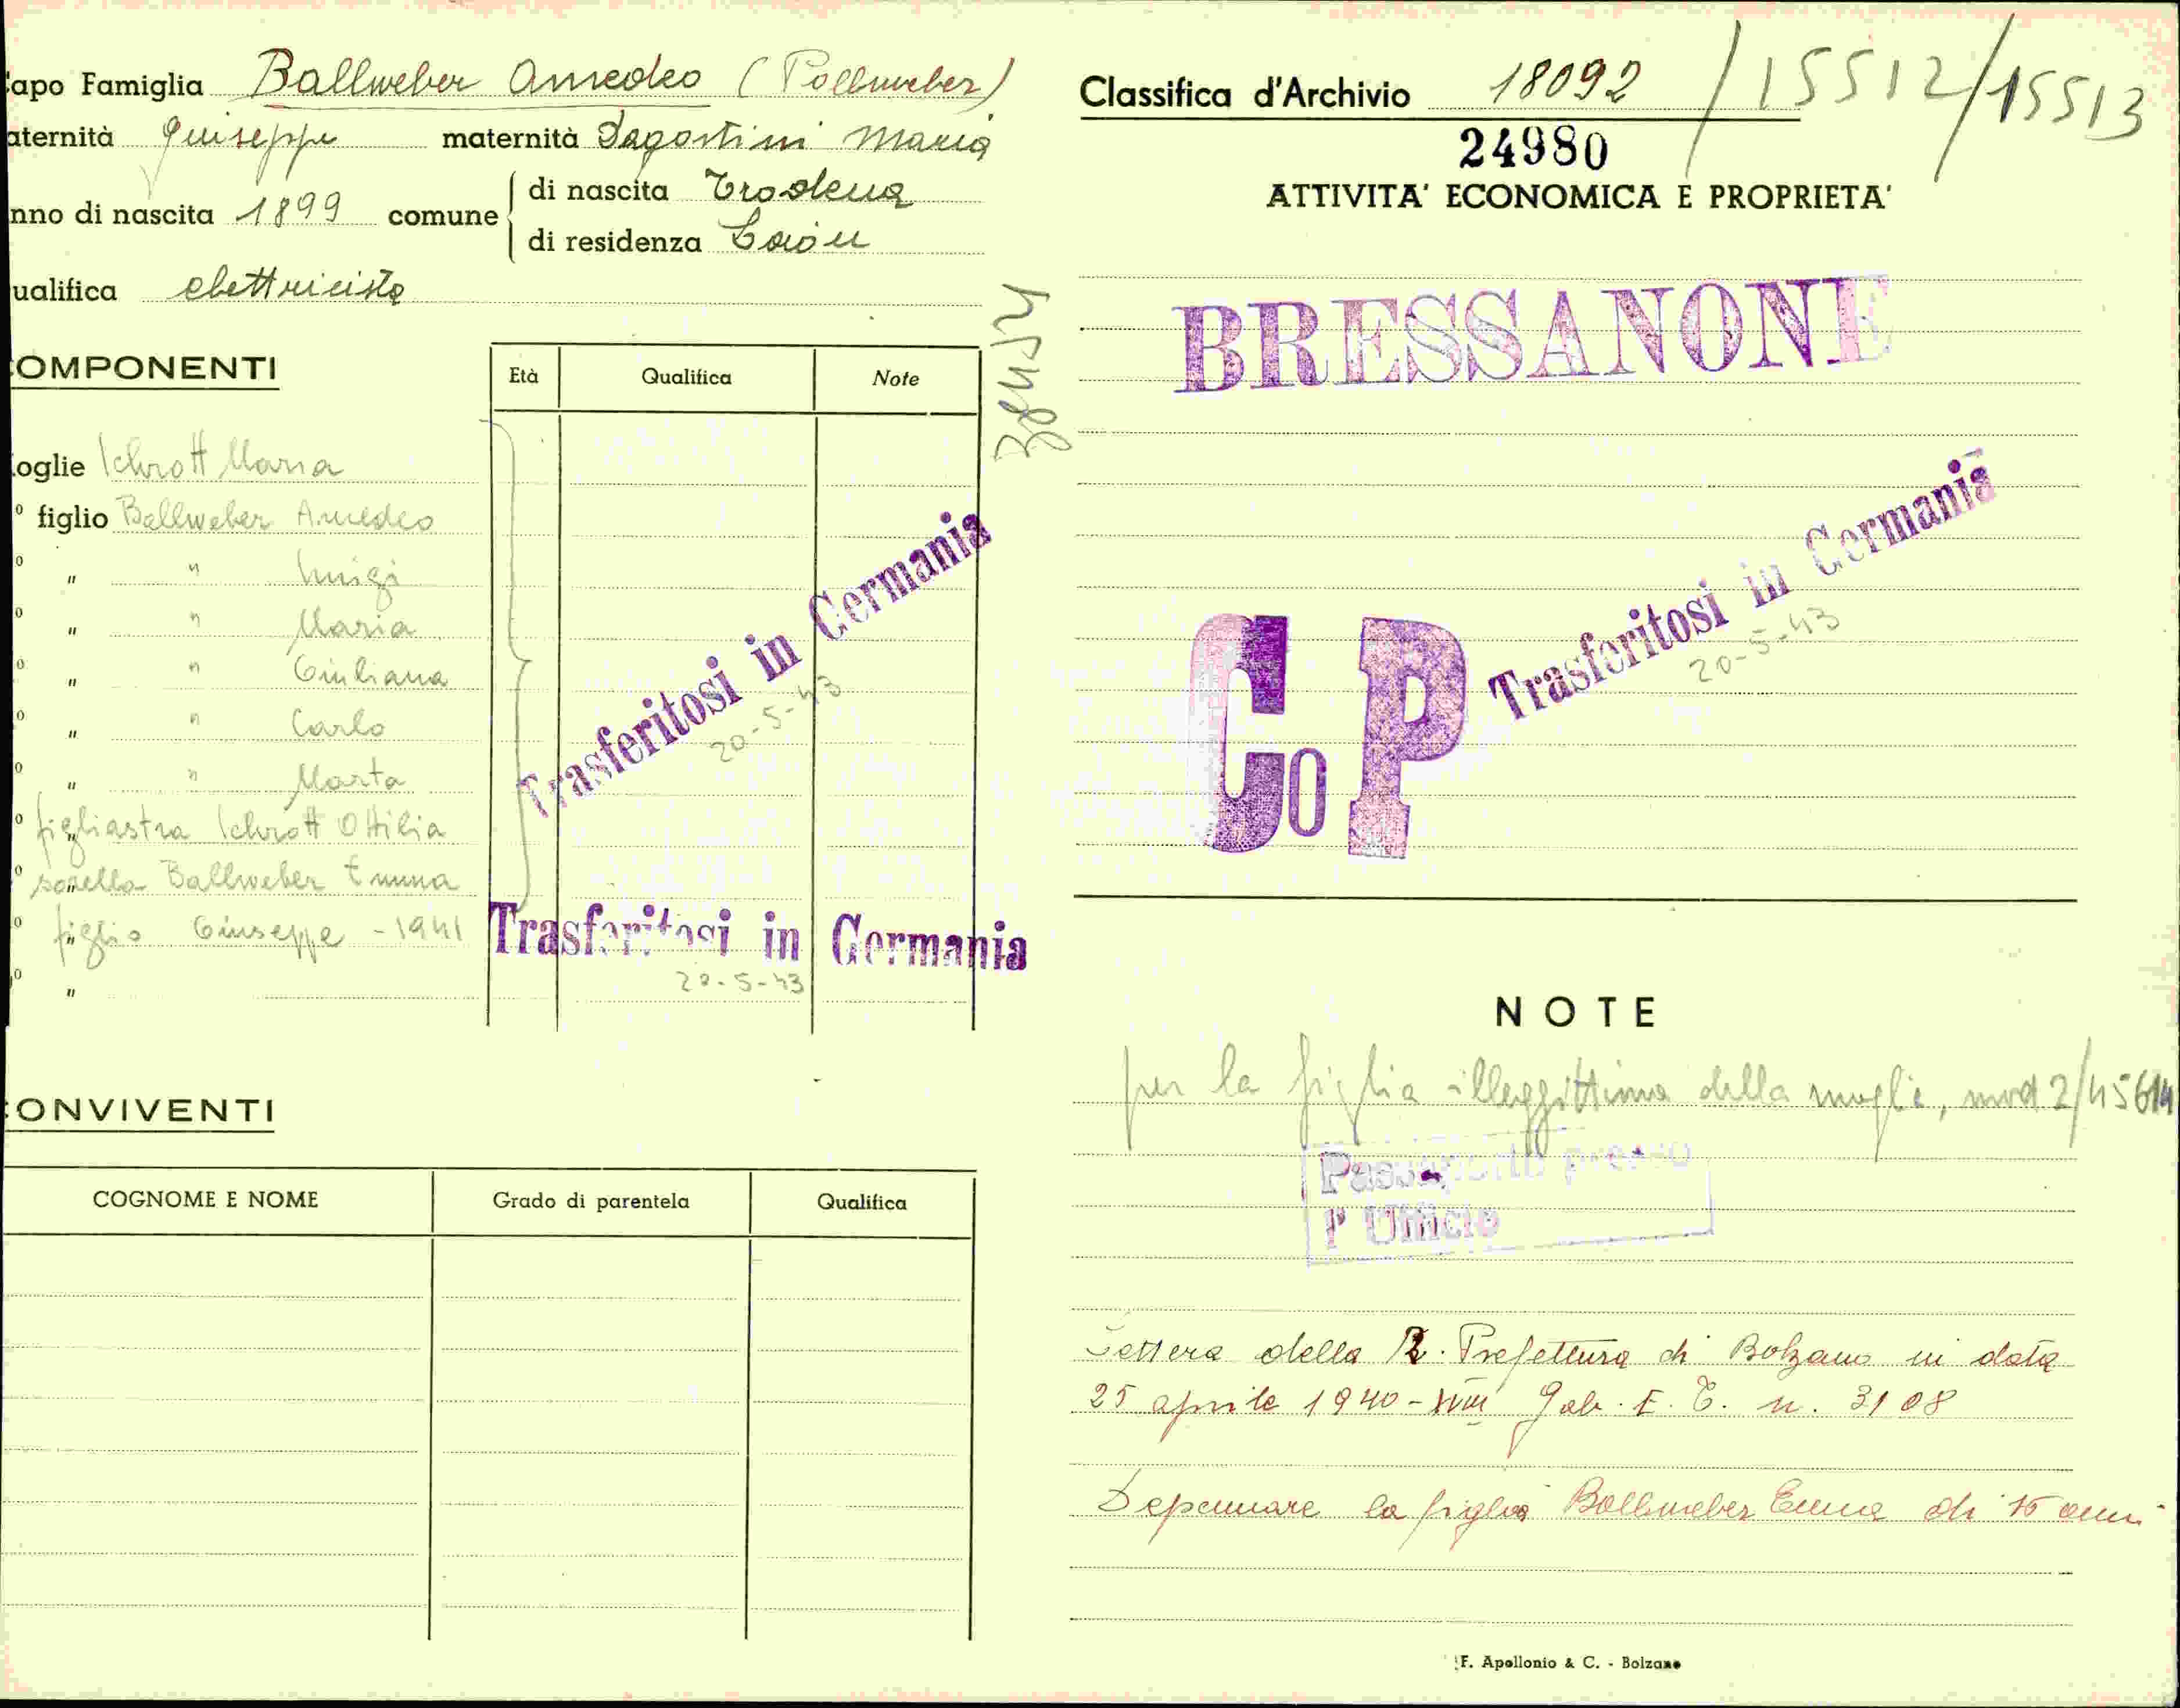 apo Famiglia Ballweber Amedeo (Pollweber)
aternità Giuseppe maternità Dagostini Maria
nno di nascita 1899 comune
di nascita Trodena
di residenza Laion
ualifica elettricista
OMPONENTI
Età Qualifica Note
oglie Schrott Maria
° figlio Ballweber Amedeo
° " " Luigi
° " " Maria
° " " Giuliana
° " " Carlo
° " " Marta
° figliastra Schrott Ottilia
° sorella Ballweber Emma
° figlio Giuseppe - 1941
° "
Trasferitosi in Germania
20-5-43
Trasferitosi in Germania
20-5-43
ONVIVENTI
COGNOME E NOME Grado di parentela Qualifica
Classifica d'Archivio 18092 / 15512/15513
24980
ATTIVITA' ECONOMICA E PROPRIETA'
BRESSANONE
Co P
Trasferitosi in Germania
20-5-43
NOTE
per la figlia illeggittima della moglie, mod 2/45614
Passaporto presso
l' Ufficio
Lettera della R. Prefettura di Bolzano in data
25 aprile 1940-XVIII Gab. E. T. n. 3108
la figlia Ballweber Emma di 15 anni
F. Apollonio & C. - Bolzano